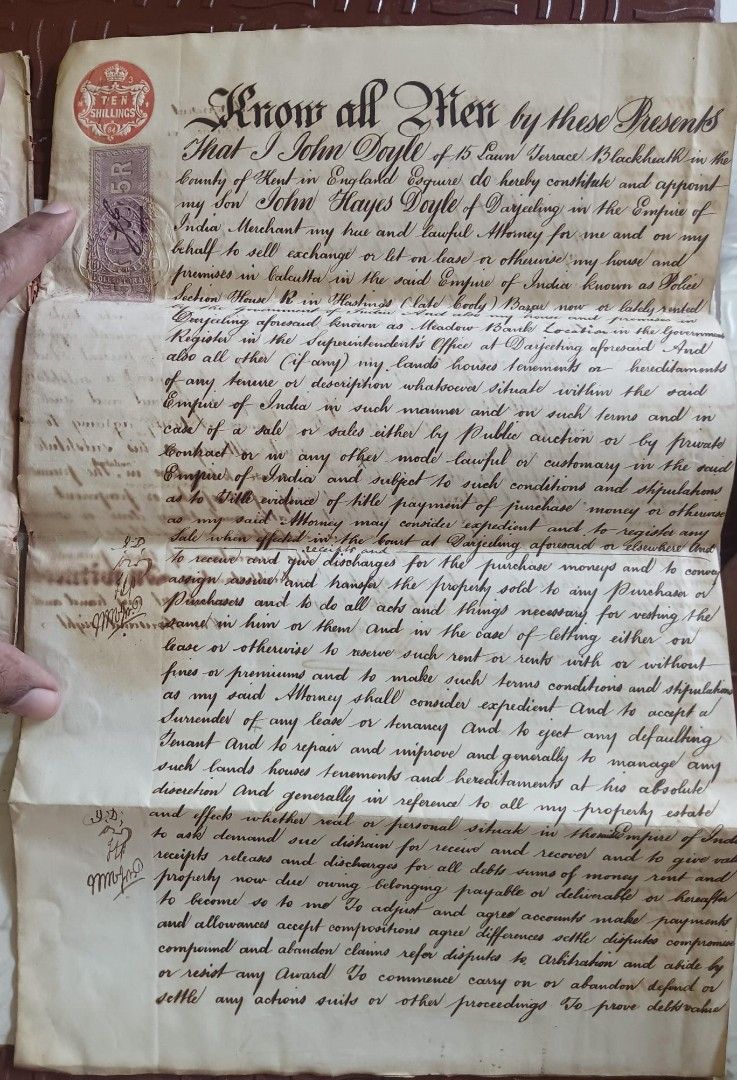 TEN
SHILLINGS
5R
Know all Men by these Presents
That I John Doyle of 15 Lawn Terrace Blackheath in the
County of Kent in England Esquire do hereby constitute and appoint
my Son John Hayes Doyle of Darjeeling in the Empire of
India Merchant my true and lawful Attorney for me and on my
behalf to sell exchange or let on lease or otherwise my house and
premises in Calcutta in the said Empire of India known as Police
Section House R in Hastings (late Cooly) Bazar now or lately rented
the Government of India And also my house and premises in
Darjeeling aforesaid known as Meadow Bank Location in the Government
Register in the Superintendent's Office at Darjeeling aforesaid And
also all other (if any) my lands houses tenements or hereditaments
of any tenure or description whatsoever situate within the said
Empire of India in such manner and on such terms and in
case of a sale or sales either by Public auction or by private
Contract or in any other mode lawful or customary in the said
Empire of India and subject to such conditions and stipulations
as to Title evidence of title payment of purchase money or otherwise
as my said Attorney may consider expedient and to register any
Sale when effected in the Court at Darjeeling aforesaid or elsewhere And
receipts and
to receive and give discharges for the purchase moneys and to convey
assign assure and transfer the property sold to any Purchaser or
Purchasers and to do all acts and things necessary for vesting the
same in him or them And in the case of letting either on
lease or otherwise to reserve such rent or rents with or without
fines or premiums and to make such terms conditions and stipulations
as my said Attorney shall consider expedient And to accept a
Surrender of any lease or tenancy And to eject any defaulting
Tenant And to repair and improve and generally to manage any
such lands houses tenements and hereditaments at his absolute
discretion And generally in reference to all my property estate
and effects whether real or personal situate in the said Empire of India
to ask demand sue distrain for receive and recover and to give
receipts releases and discharges for all debts sums of money rent and
property now due owing belonging payable or deliverable or hereafter
to become so to me To adjust and agree accounts make payments
and allowances accept compositions agree differences settle disputes compromise
compound and abandon claims refer disputes to Arbitration and abide by
or resist any Award To commence carry on or abandon defend or
settle any actions suits or other proceedings To prove debts value
J.D.
J.D.